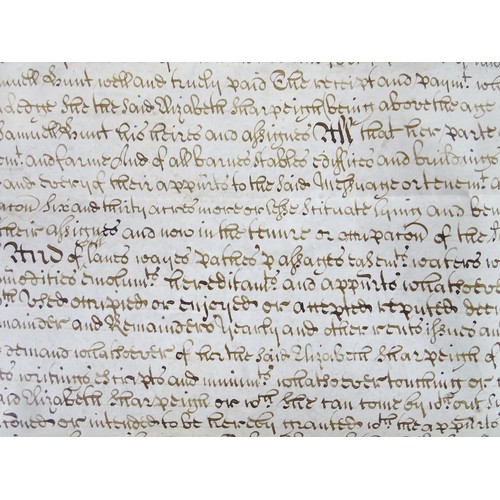 muell Hunt well and truely paid The receipt and paymt. wh
ledge She the said Elizabeth Sharpeigh being above the age
Samuell Hunt his heires and assignes All that her parte
emt. and farme And of all barnes stables edifices and buildings
and every of their appurts to the said Messuage or tenemt. a
acon Six and thirty acres more or lesse Scituate lying and bei
their assignes and now in the tenure or occupacon of the
And of laues wayes pathes passages easemts. waters w
modities emolumts. hereditamts. and appurts whatsoever
wth. used occupied or enjoyed or accepted reputed dee
mainder and Remainders Yearly and other rents issues and
demand whatsoever of her the said Elizabeth Sharpeigh of
ts writings escripts and minimts. whatsoever touching or
aid Elizabeth Sharpeigh or wch. She can come by wthout Su
coned or intended to be hereby granted wth. the appurts